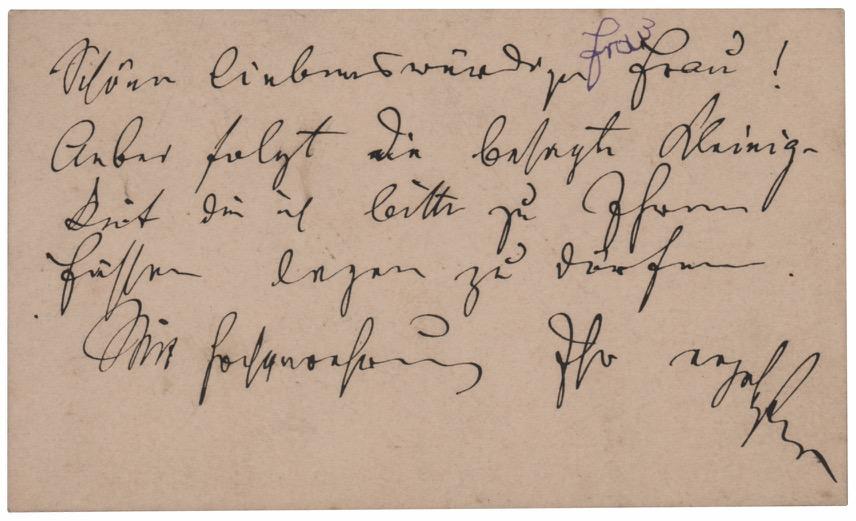 Schöne liebenswürdige Frau
Frau!
Anbei folgt die besagte Kleinig-
keit die ich bitte zu Ihren
Füssen legen zu dürfen.
Mit Ihr